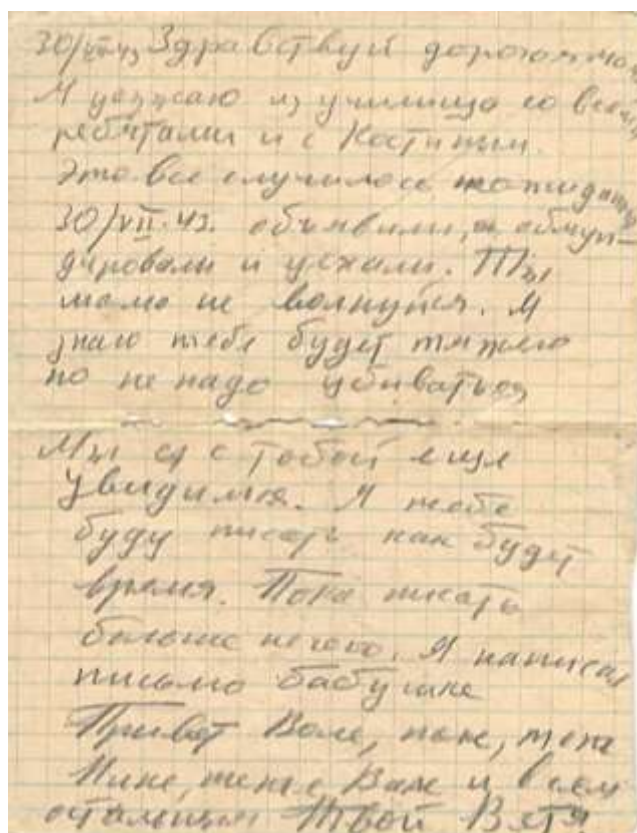 30/VII-43 Здравствуй дорогая мам
Я уезжаю из училища со всеми
ребятами и с Костиным.
Это все случилось неожиданно
30/VII-43. объявили, обмун-
дировали и уехали. Ты
мама не волнуйся. Я
знаю тебе будет тяжело
но не надо убиваться
Мы с тобой еще
увидимся. Я тебе
буду писать как будет
время. Пока писать
больше нечего. Я написал
письмо бабушке
Привет Вале, папе, тете
Нине, тете Вале и всем
остальным Твой Витя